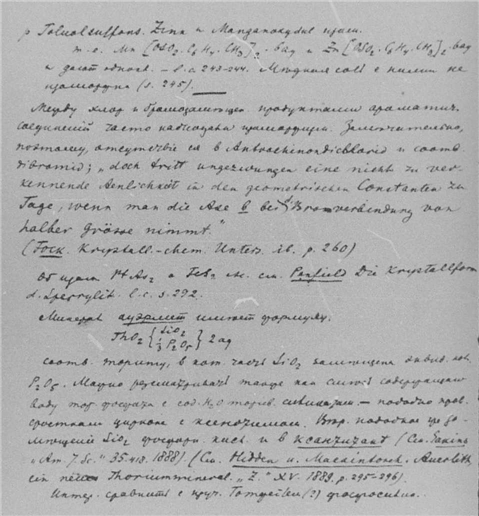 p Toluolsulfons. Zinn и Manganoxydul
т.е. Mn [OSO2.C6H4.CH3]2.6aq и Zn [OSO2.C6H4.CH3]2.6aq
и дают — l.c. 243-244. Медная соль с ними не
изоморфна (s. 245).
Между хлор и бромозамещен. продуктами ароматич.
соединений часто наблюдали изоморфизм. Замечательно,
поэтому, отсутствие ея в Anthrachinondichlorid и соотв.
dibromid; „doch tritt ungezwungen eine nicht zu ver-
kennende Aenlichkeit in den geometrischen Constanten zu
Tage, wenn man die Axe b bei d. Bromverbindung von
halber Grösse nimmt."
(Fock. Krystall.-chem. Unters. ib. p. 260)
Об изом. PtAs2 и FeS2 см. Penfield Die Krystallform
d. Sperrylit. l. c. s. 292.
Минерал ауэрлит имеет формулу:
ThO2 { SiO2 1/3 P2O5 } 2 aq
соотв. ториту, в кот. часть SiO2 замещена
P2O5. Можно рассматривать также как смесь содержащ.
воду фосфата с сод. H2O торие. силикатом — подобно
сросткам циркона с ксенотимом. подобное
SiO2 фосфорн. кисл. и в
„Am. J. Sc." 35. 1888). (См. Hidden u. Mackintosh. Auerlith,
ein neues Thoriummineral. „Z." XV. 1889. p. 295-296).
Интер. сравнить с